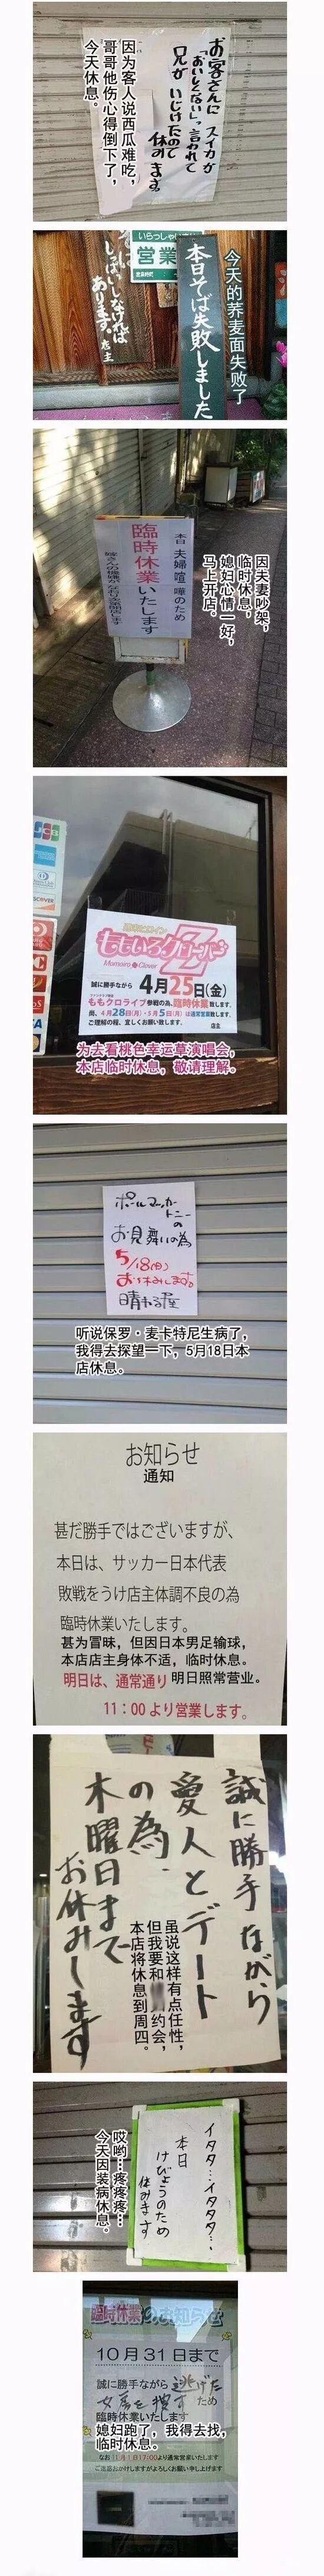 お客さんに スイカが
「おいしくない」と言われて
兄が いじけたので
休みます。
因为客人说西瓜难吃，
哥哥他伤心得倒下了，
今天休息。
いらっしゃいませ
営業
本日そば失敗しました
しっぱいしなければ
あります。店主
今天的荞麦面失败了
本日 夫婦喧嘩のため
臨時休業いたします
因夫妻吵架，
临时休息，
媳妇心情一好，
马上开店。
JCB
DISCOVER
ももいろクローバーZ
Momoiro Clover
誠に勝手ながら 4月25日(金)
ももクロライブ参戦の為、臨時休業致します。
尚、4月28日(月)・5月5日(月)は通常営業致します。
ご理解の程、宜しくお願い致します。
店主
为去看桃色幸运草演唱会，
本店临时休息，敬请理解。
ポールマッカートニーの
お見舞いの為
5/18(日)
お休みします。
晴れる屋
听说保罗·麦卡特尼生病了，
我得去探望一下，5月18日本
店休息。
お知らせ
通知
甚だ勝手ではございますが、
本日は、サッカー日本代表
敗戦をうけ店主体調不良の為
臨時休業いたします。
甚为冒昧，但因日本男足输球，
本店店主身体不适，临时休息。
明日は、通常通り 明日照常营业。
11：00 より営業します。
誠に勝手ながら
愛人とデート
の為、
木曜日まで
お休みします
虽说这样有点任性，
但我要和 约会，
本店将休息到周四。
イタタ…イタタタ…
本日
けびょうのため
休みます
哎哟…疼疼疼…
今天因装病休息。
臨時休業のお知らせ
10月31日まで
誠に勝手ながら 逃げた
女房を捜す ため
臨時休業いたします
媳妇跑了，我得去找，
临时休息。
なお 11月1日17:00より通常営業いたします
ご迷惑おかけしますがよろしくお願い申し上げます